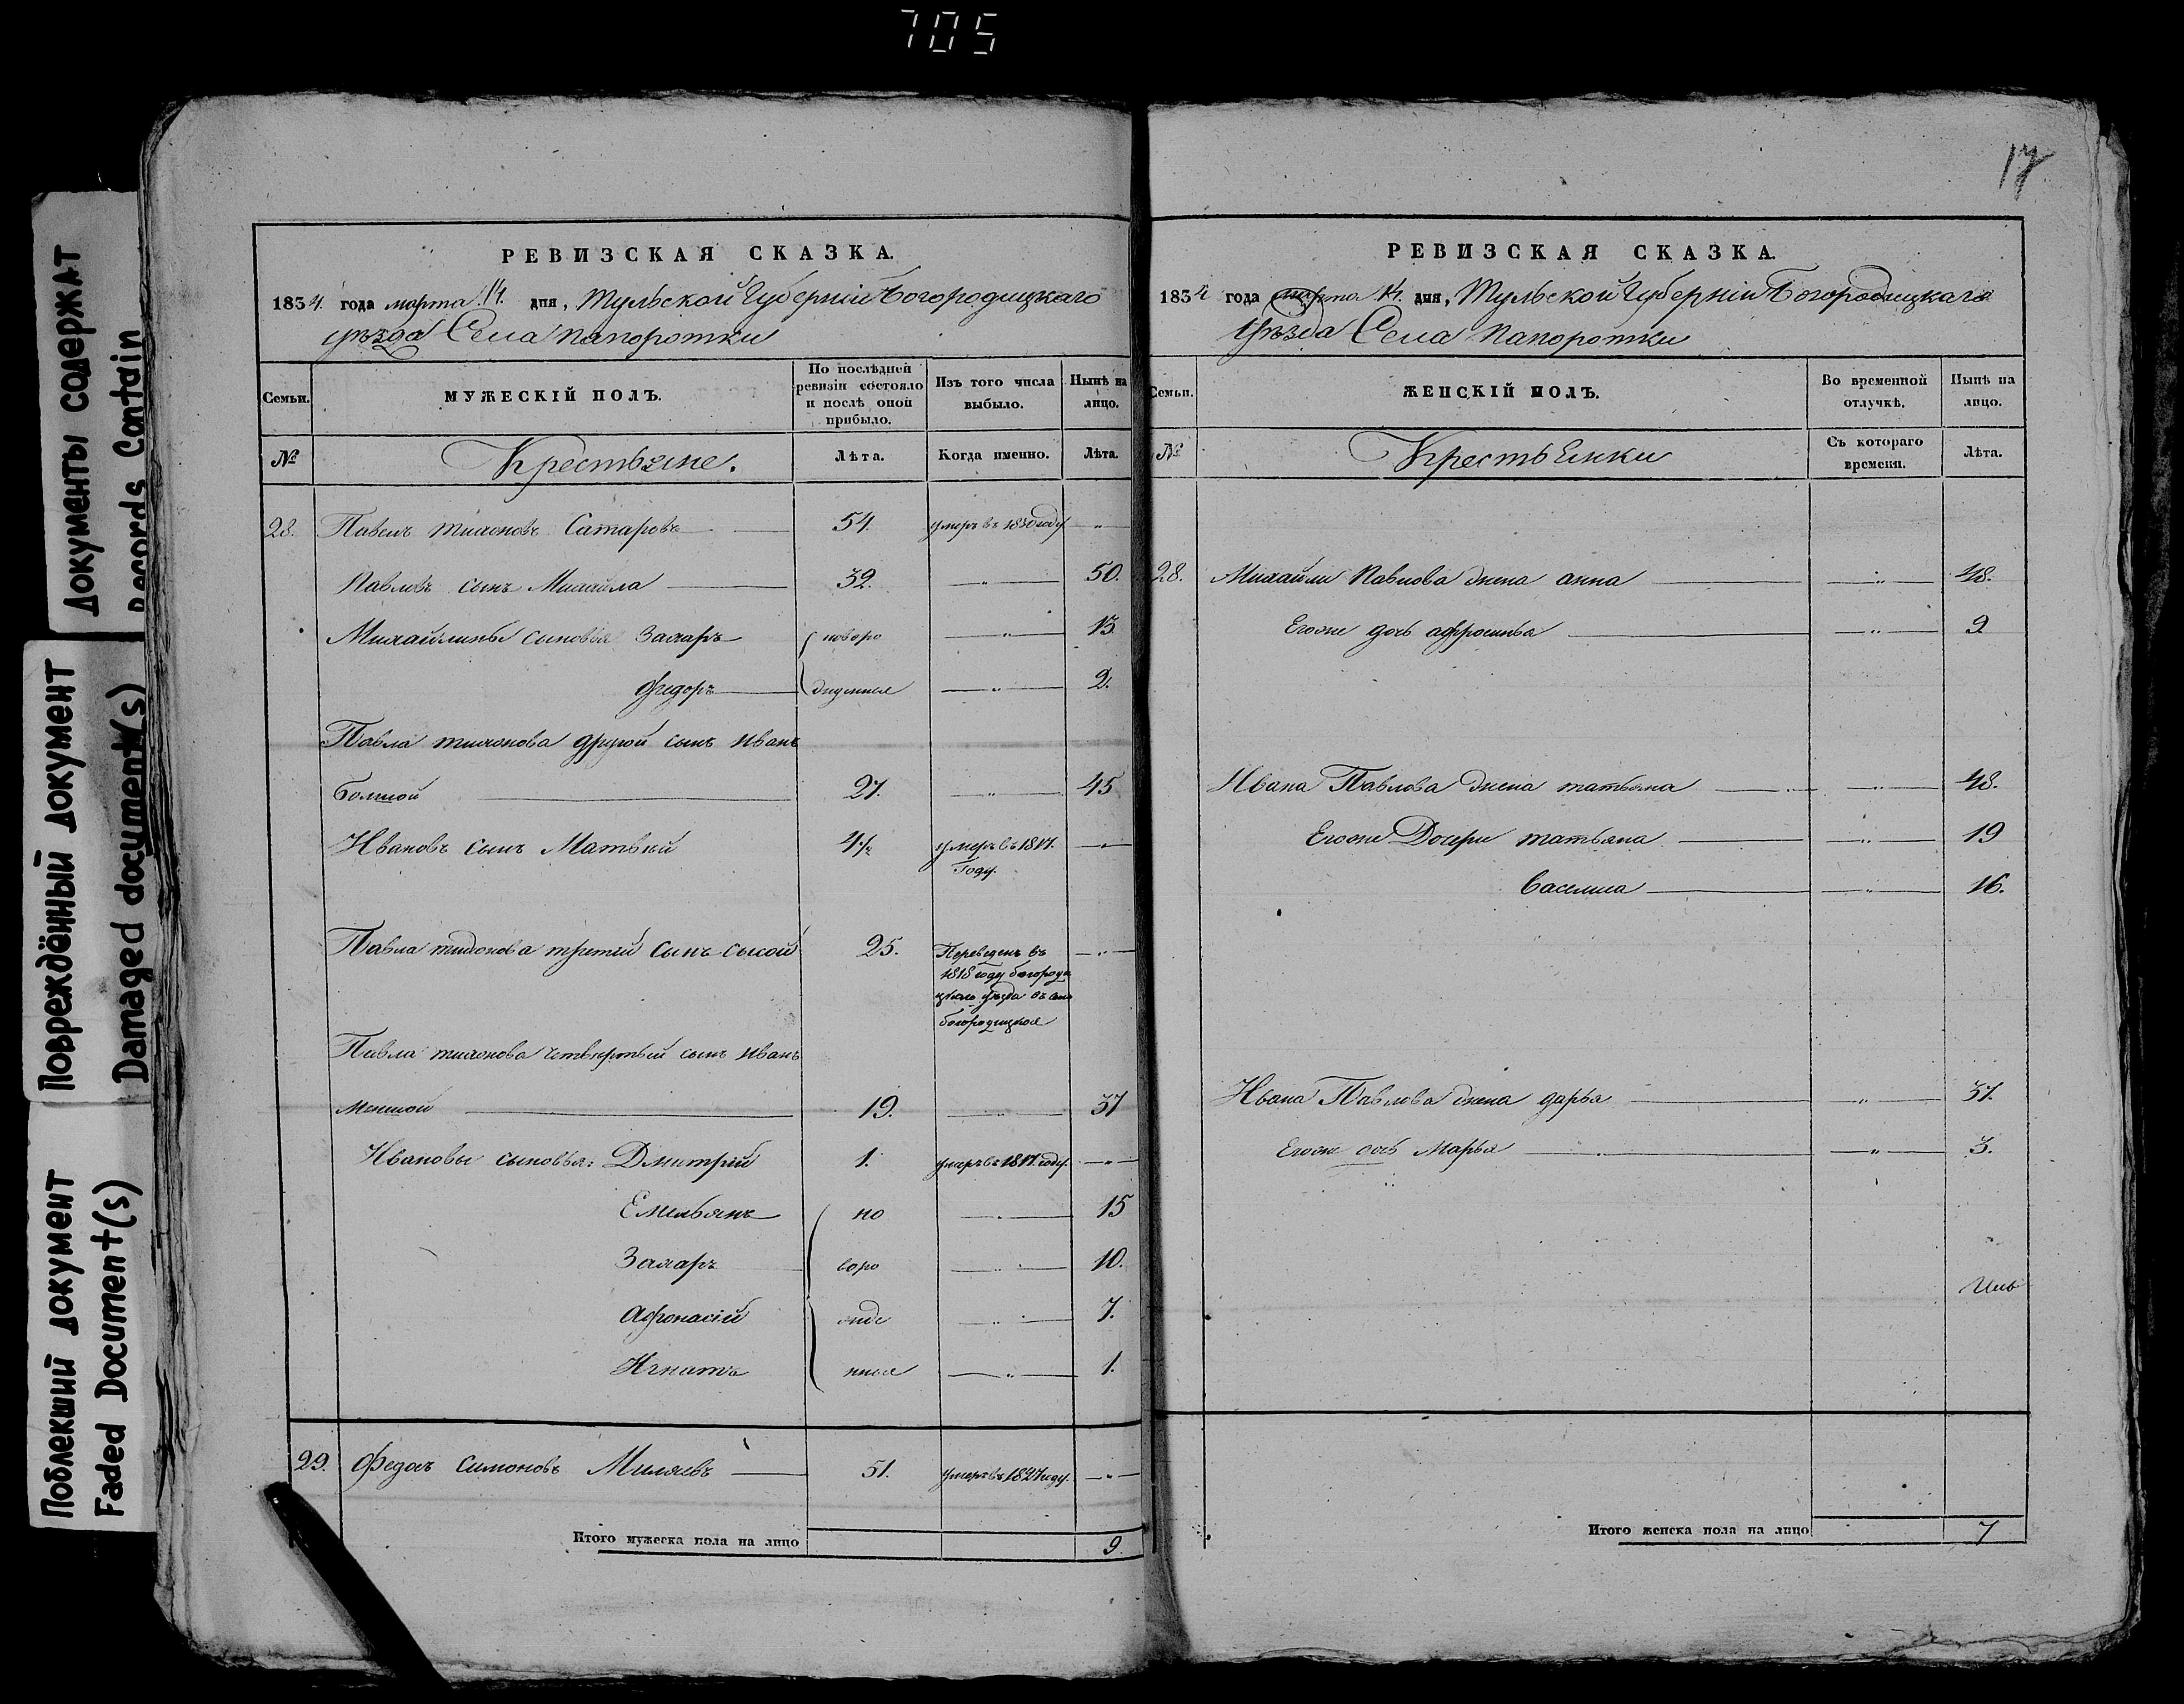 705
17
Документы содержат
Records Contain
Повреждённый документ
Damaged document(s)
Поблекший документ
Faded Document(s)
РЕВИЗСКАЯ СКАЗКА.
1834 года марта 14. дня, Тульской Губерніи Богородицкаго
уѣзда Села Папоротки
Семьи. МУЖЕСКІЙ ПОЛЪ. По послѣдней ревизіи состояло и послѣ оной прибыло. Изъ того числа выбыло. Нынѣ на лицо.
№ Крестьяне. Лѣта. Когда именно. Лѣта.
28. Павелъ тихоновъ Сатаровъ 54. умеръ въ 1830 году „
Павловъ сынъ Михайла 32. „ 50.
Михайлины сыновья Захаръ новоро „ 13
Федоръ жденныя „ 2.
Павла тихонова другой сынъ Иванъ
болшой 27. „ 45
Ивановъ сынъ Матвѣй 4½ умеръ въ 1817.
Году.
Павла тихонова третій сынъ Сысой 25. Переведенъ въ „
1818 году богороди
цкаго уѣзда въ село
богородицкое
Павла тихонова четвертый сынъ Иванъ
меншой 19. „ 37
Ивановы сыновья: Дмитрій 1. умеръ въ 1817 году. „
Емельянъ но „ 15
Захаръ воро „ 10.
Афонасій жде „ 7.
Игнатъ нныя „ 1.
29. Федоръ Симоновъ Миляевъ 51. умеръ въ 1827 году. „
Итого мужеска пола на лицо 9.
РЕВИЗСКАЯ СКАЗКА.
1834 года марта 14. дня, Тульской Губерніи Богородицкаго
Уѣзда Села Папоротки
Семьи. ЖЕНСКІЙ ПОЛЪ. Во временной отлучкѣ. Нынѣ на лицо.
№ Крестьянки Съ котораго времени. Лѣта.
28. Михайлы Павлова жена анна „ 48.
Егоже дочь афросинья „ 9
Ивана Павлова жена татьяна „ 48.
Егоже Дочери татьяна „ 19
Василиса „ 16.
Ивана Павлова жена дарья „ 37.
Егоже дочь Марья „ 3.
Итого женска пола на лицо 7